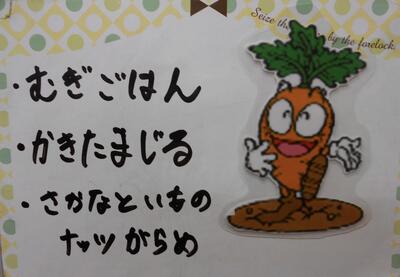 Seize the by the forelock.
・むぎごはん
・かきたまじる
・さかなといもの
ナッツがらめ